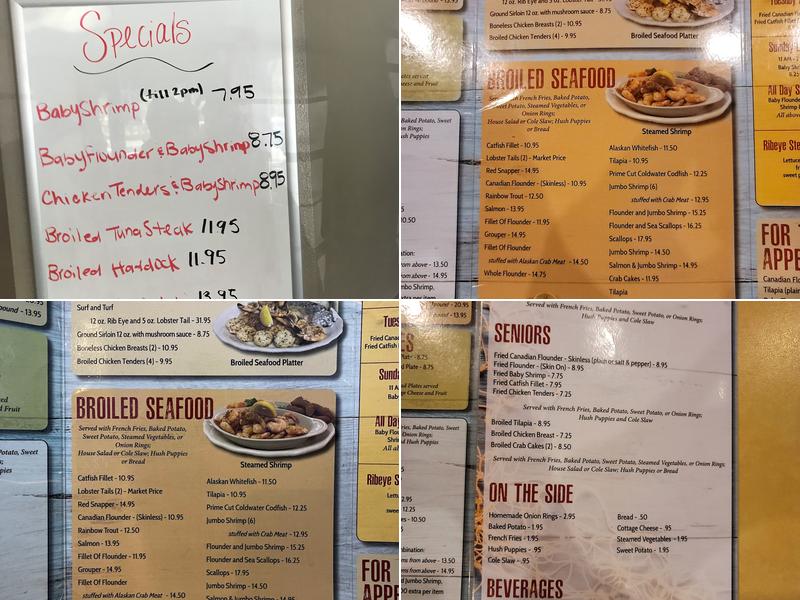 Specials
(till 2pm)
BabyShrimp 7.95
BabyFlounder & BabyShrimp 8.75
ChickenTenders & BabyShrimp 8.95
Broiled Tuna Steak 11.95
Broiled Haddock 11.95
13.95
12 oz. Rib Eye and 5 oz. Lobster Tail -
Ground Sirloin 12 oz. with mushroom sauce - 8.75
Boneless Chicken Breasts (2) - 10.95
Broiled Chicken Tenders (4) - 9.95
Broiled Seafood Platter
BROILED SEAFOOD
French Fries, Baked Potato,
Sweet Potato, Steamed Vegetables, or
Onion Rings;
House Salad or Cole Slaw; Hush Puppies
or Bread
Steamed Shrimp
Catfish Fillet - 10.95
Lobster Tails (2) - Market Price
Red Snapper - 14.95
Canadian Flounder - (Skinless) - 10.95
Rainbow Trout - 12.50
Salmon - 13.95
Fillet Of Flounder - 11.95
Grouper - 14.95
Fillet Of Flounder
stuffed with Alaskan Crab Meat - 14.50
Whole Flounder - 14.75
Alaskan Whitefish - 11.50
Tilapia - 10.95
Prime Cut Coldwater Codfish - 12.25
Jumbo Shrimp (6)
stuffed with Crab Meat - 12.95
Flounder and Jumbo Shrimp - 15.25
Flounder and Sea Scallops - 16.25
Scallops - 17.95
Jumbo Shrimp - 14.50
Salmon & Jumbo Shrimp - 14.95
Crab Cakes - 11.95
Tilapia
Baked Potato, Sweet
Onion Rings;
from above - 13.50
from above - 14.95
Jumbo Shrimp,
extra per item
Tuesday
Fried Canadian F
Fried Catfish F
Sunday
11 AM - 2
All Day S
Baby Flounde
Shrimp
All above
Ribeye Ste
Lettuc
FOR T
APPE
Canadian Flo
Tilapia (plain
Surf and Turf
12 oz. Rib Eye and 5 oz. Lobster Tail - 31.95
Ground Sirloin 12 oz. with mushroom sauce - 8.75
Boneless Chicken Breasts (2) - 10.95
Broiled Chicken Tenders (4) - 9.95
Broiled Seafood Platter
BROILED SEAFOOD
Served with French Fries, Baked Potato,
Sweet Potato, Steamed Vegetables, or
Onion Rings;
House Salad or Cole Slaw; Hush Puppies
or Bread
Steamed Shrimp
Catfish Fillet - 10.95
Lobster Tails (2) - Market Price
Red Snapper - 14.95
Canadian Flounder - (Skinless) - 10.95
Rainbow Trout - 12.50
Salmon - 13.95
Fillet Of Flounder - 11.95
Grouper - 14.95
Fillet Of Flounder
stuffed with Alaskan Crab Meat - 14.50
Alaskan Whitefish - 11.50
Tilapia - 10.95
Prime Cut Coldwater Codfish - 12.25
Jumbo Shrimp (6)
stuffed with Crab Meat - 12.95
Flounder and Jumbo Shrimp - 15.25
Flounder and Sea Scallops - 16.25
Scallops - 17.95
Jumbo Shrimp - 14.50
Salmon & Jumbo Shrimp - 14.95
Tues
Fried Can
Fried Catf
Sunda
11 A
All Day
Baby Flo
Ribeye S
FOR
APP
Served with French Fries, Baked Potato, Sweet Potato, or Onion Rings;
Hush Puppies and Cole Slaw
SENIORS
Fried Canadian Flounder - Skinless (plain or salt & pepper) - 8.95
Fried Flounder - (Skin On) - 8.95
Fried Baby Shrimp - 7.75
Fried Catfish Fillet - 7.95
Fried Chicken Tenders - 7.25
Served with French Fries, Baked Potato, Sweet Potato, or Onion Rings;
Hush Puppies and Cole Slaw
Broiled Tilapia - 8.95
Broiled Chicken Breast - 7.25
Broiled Crab Cakes (2) - 8.50
Served with French Fries, Baked Potato, Sweet Potato, Steamed Vegetables, or Onion Rings;
House Salad or Cole Slaw; Hush Puppies or Bread
ON THE SIDE
Homemade Onion Rings - 2.95
Baked Potato - 1.95
French Fries - 1.95
Hush Puppies - .95
Cole Slaw - .95
Bread - .50
Cottage Cheese - .95
Steamed Vegetables - 1.95
Sweet Potato - 1.95
BEVERAGES